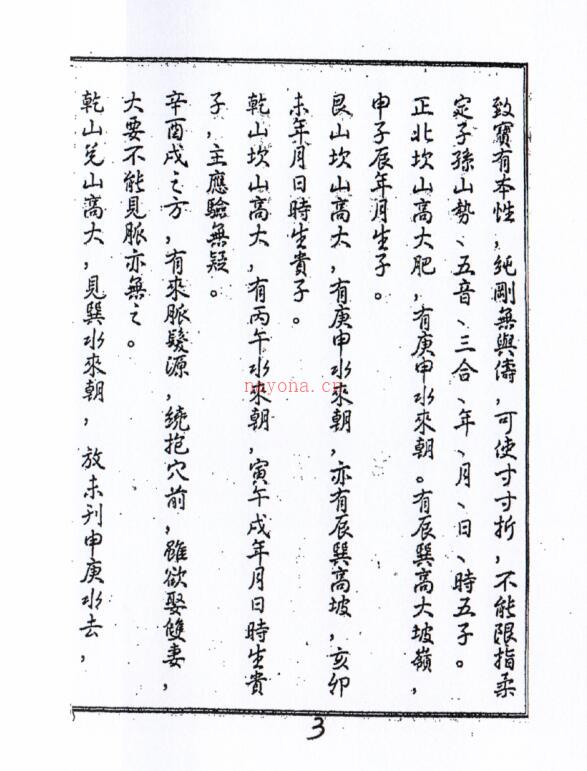 致寶有本性，純剛無與儔，可使寸寸折，不能限指柔
定子孫山勢、五音、三合、年、月、日、時五子。
正北坎山高大肥，有庚申水來朝。有辰巽高大坡嶺，
申子辰年月生子。
艮山坎山高大，有庚申水來朝，亦有辰巽高坡，亥卯
未年月日時生貴子。
乾山坎山高大，有丙午水來朝，寅午戌年月日時生貴
子，主應驗無疑。
辛酉戌之方，有來脈髮源，繞抱穴前，雖欲娶雙妻，
大要不能見脈亦無之。
乾山兌山高大，見巽水來朝，放未刋申庚水去，
nayona.cn
3